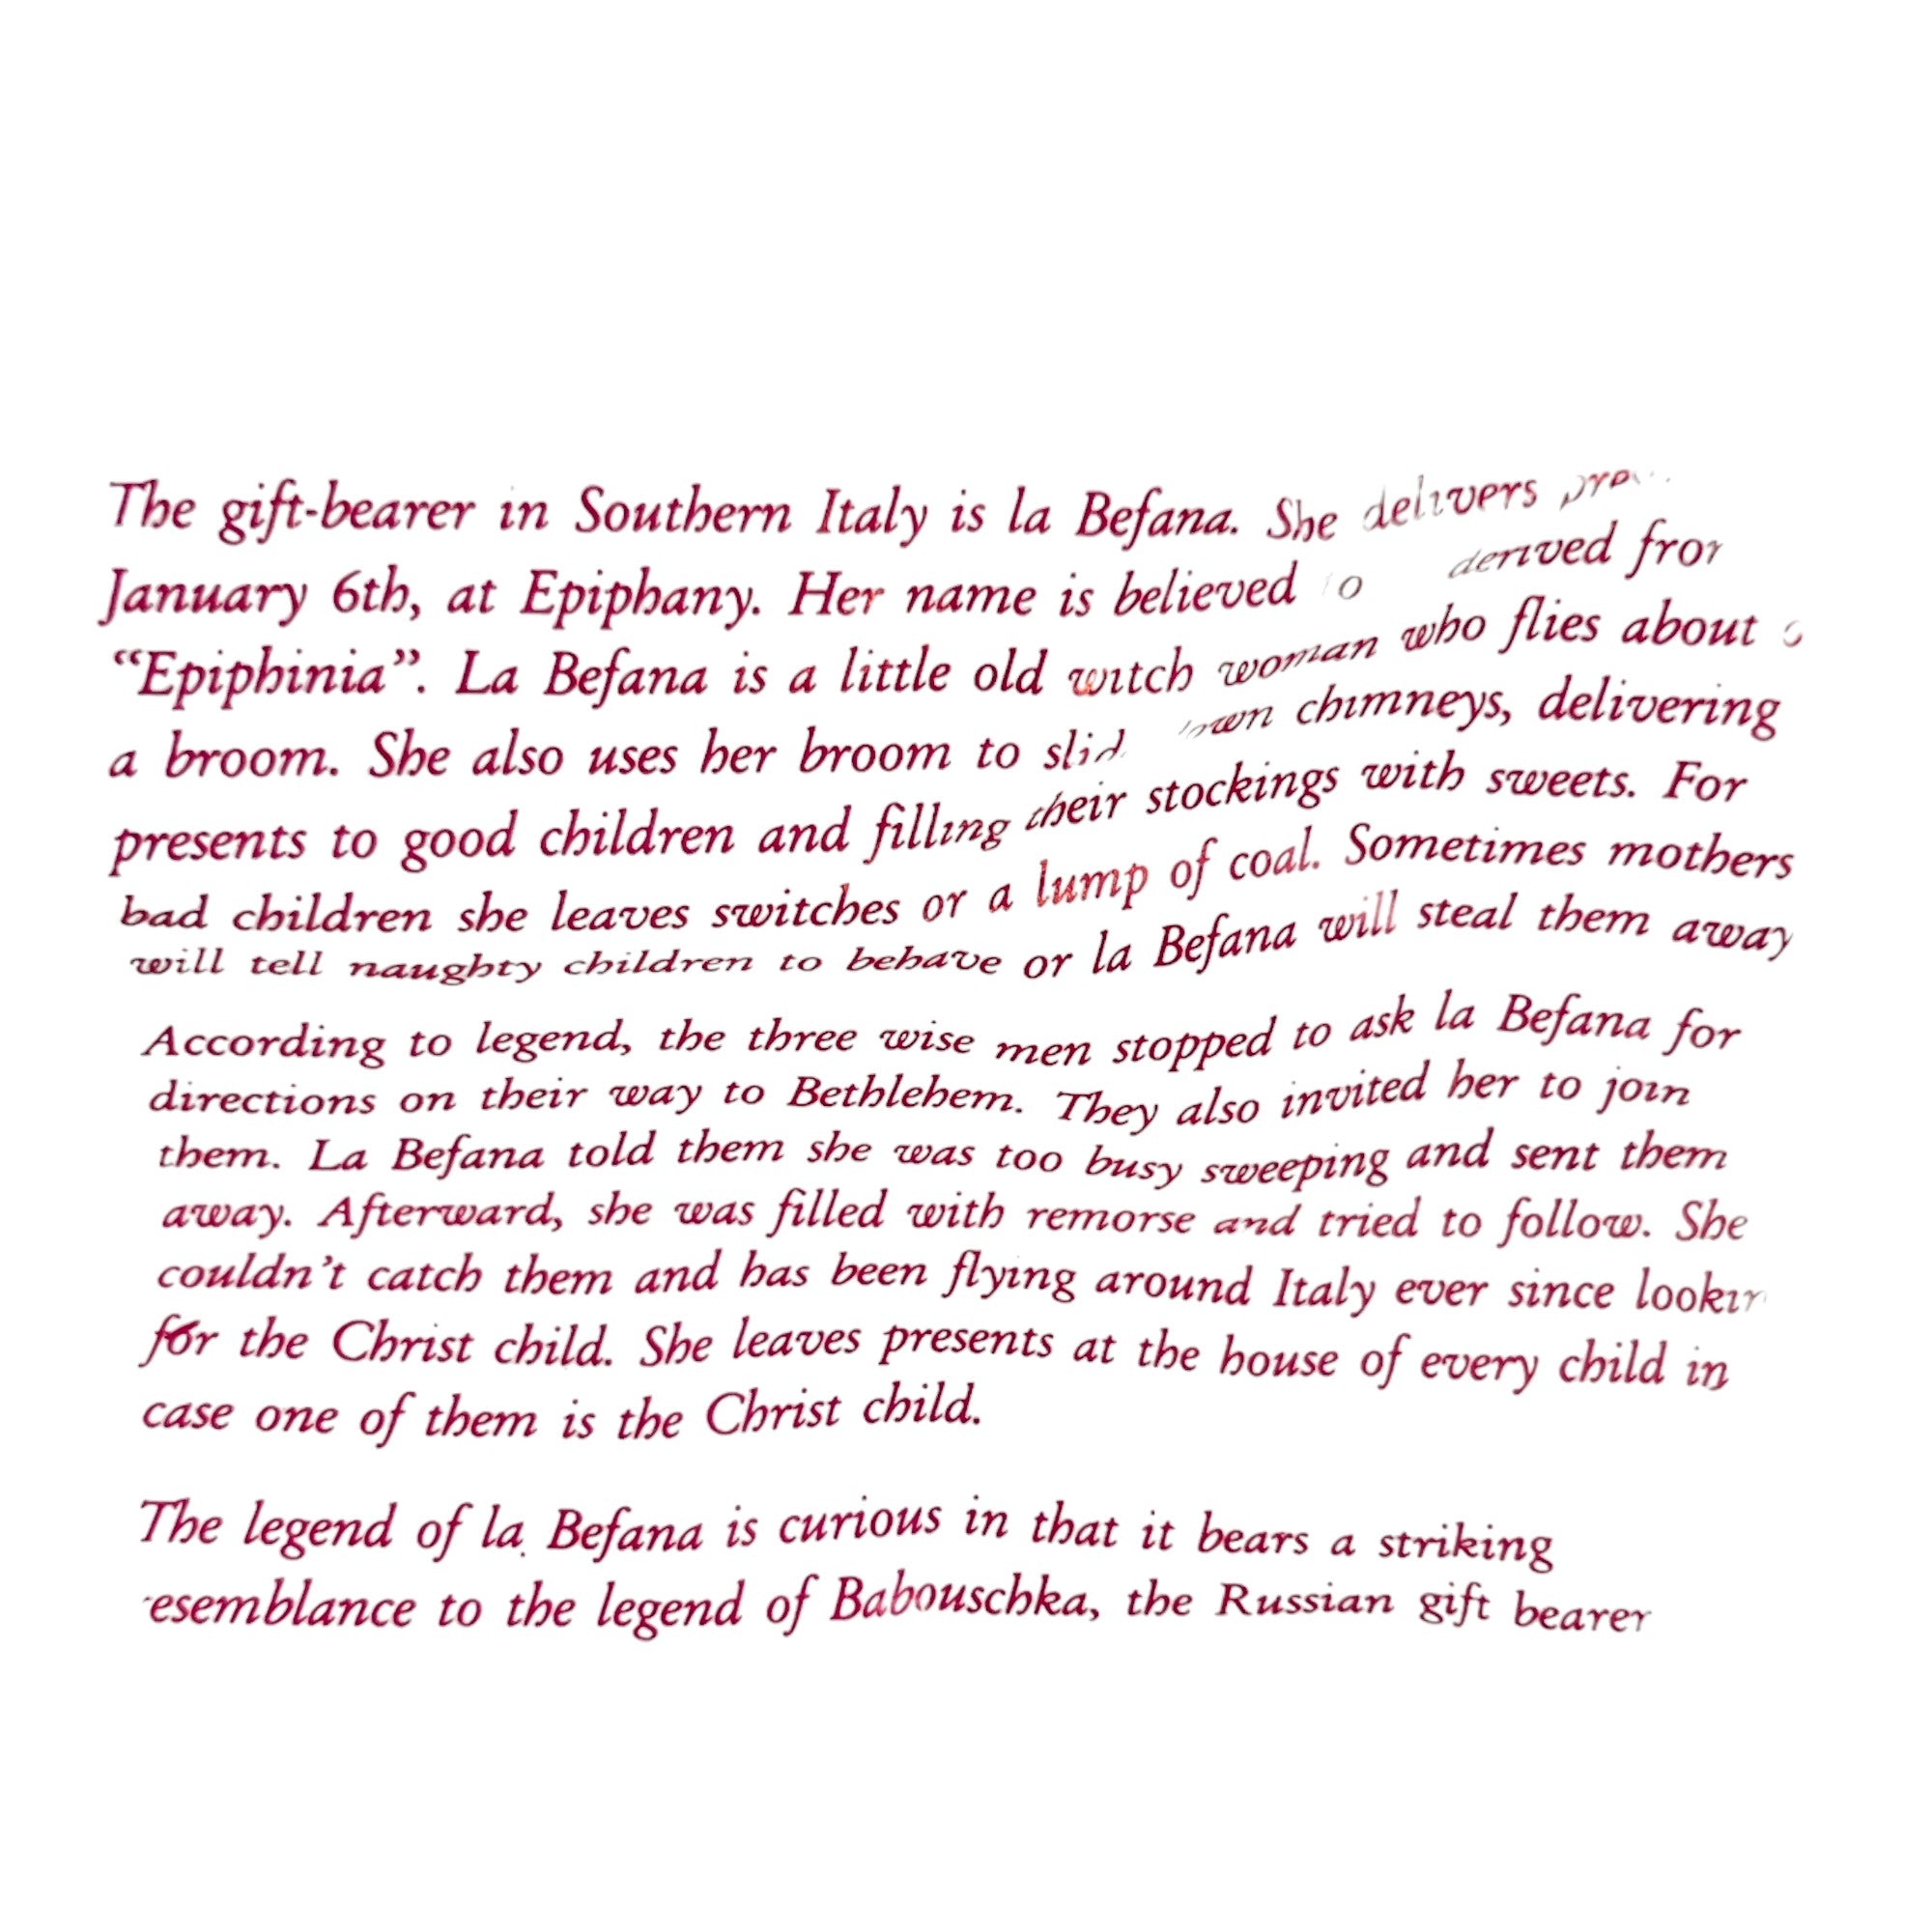 The gift-bearer in Southern Italy is la Befana. She delivers
January 6th, at Epiphany. Her name is believed derived
“Epiphinia”. La Befana is a little old witch woman who flies about
a broom. She also uses her broom to chimneys, delivering
presents to good children and filling their stockings with sweets. For
bad children she leaves switches or a lump of coal. Sometimes mothers
will tell naughty children to behave or la Befana will steal them away
According to legend, the three wise men stopped to ask la Befana for
directions on their way to Bethlehem. They also invited her to join
them. La Befana told them she was too busy sweeping and sent them
away. Afterward, she was filled with remorse and tried to follow. She
couldn’t catch them and has been flying around Italy ever since
for the Christ child. She leaves presents at the house of every child in
case one of them is the Christ child.
The legend of la Befana is curious in that it bears a striking
to the legend of Babouschka, the Russian gift bearer